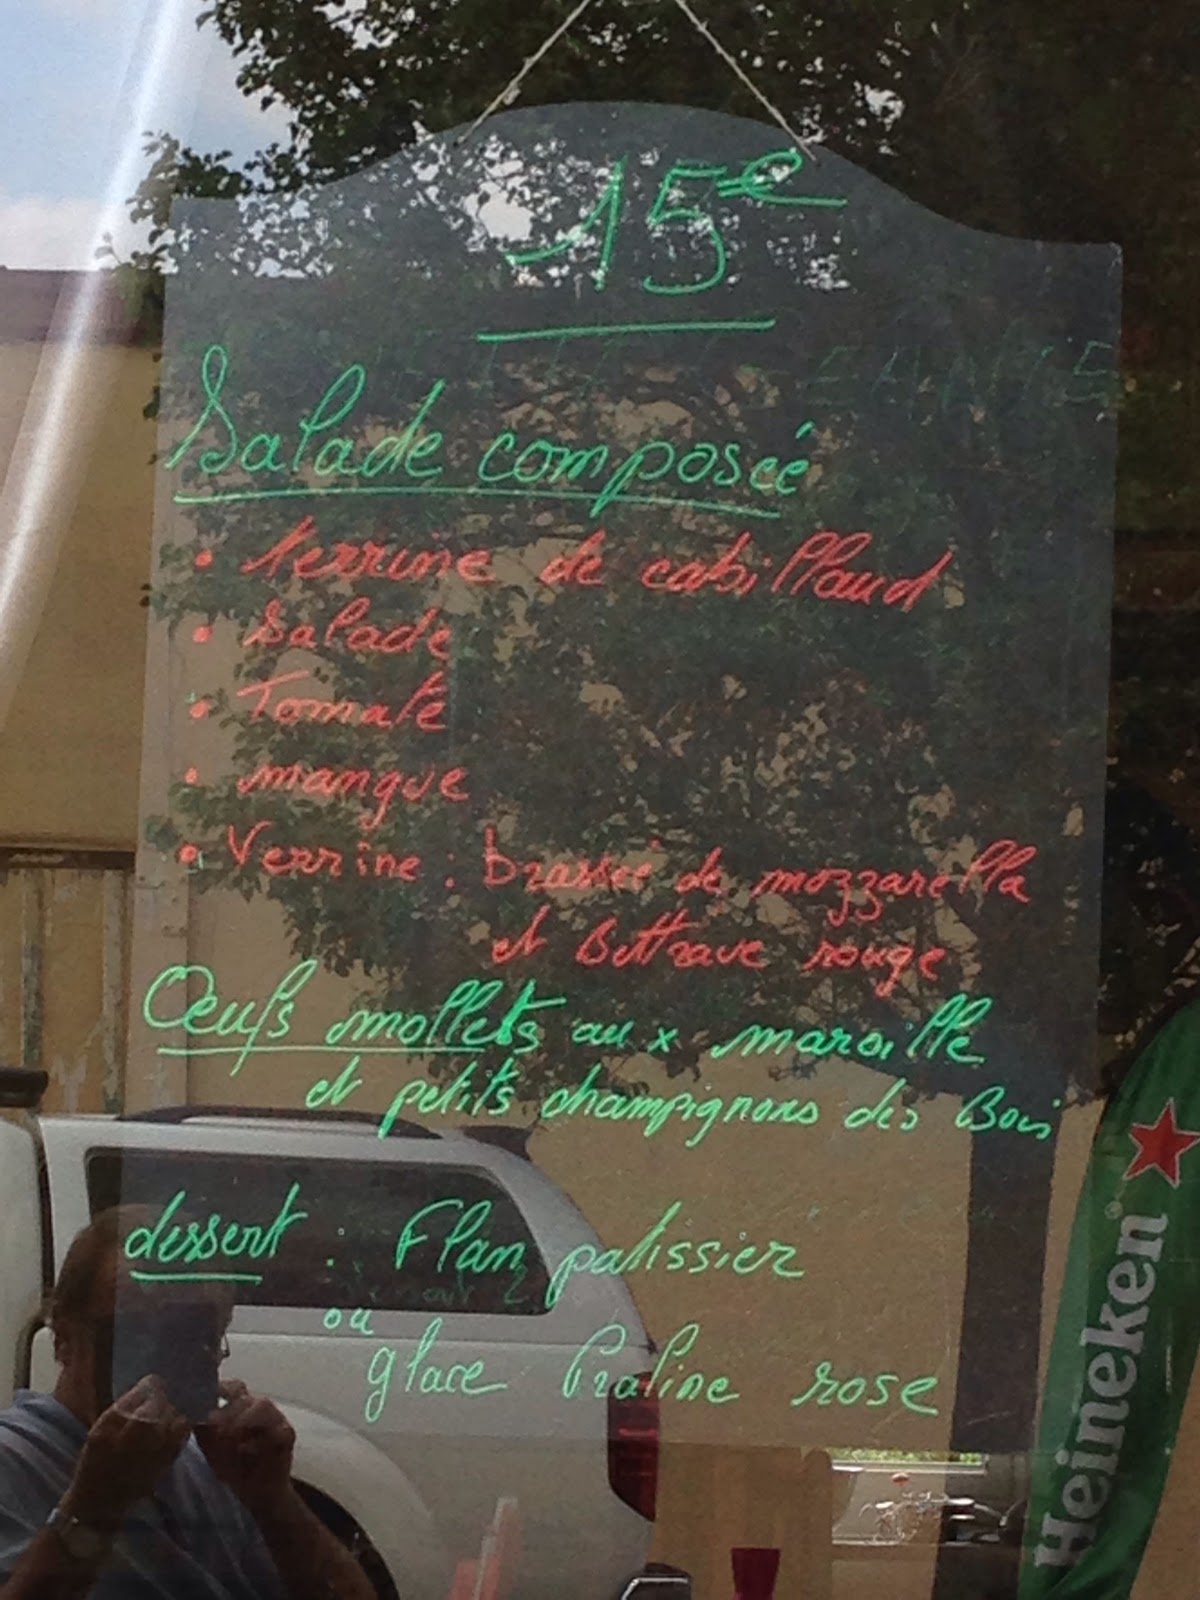 15€
Salade composeé
• terrine de cabillaud
• Salade
• Tomate
• mangue
• Verrine : brassée de mozzarella
et Bettrave rouge
Œufs mollets aux maroille
et petits champignons des Bois
dessert : Flan patissier
ou
glace Praline rose
Heineken